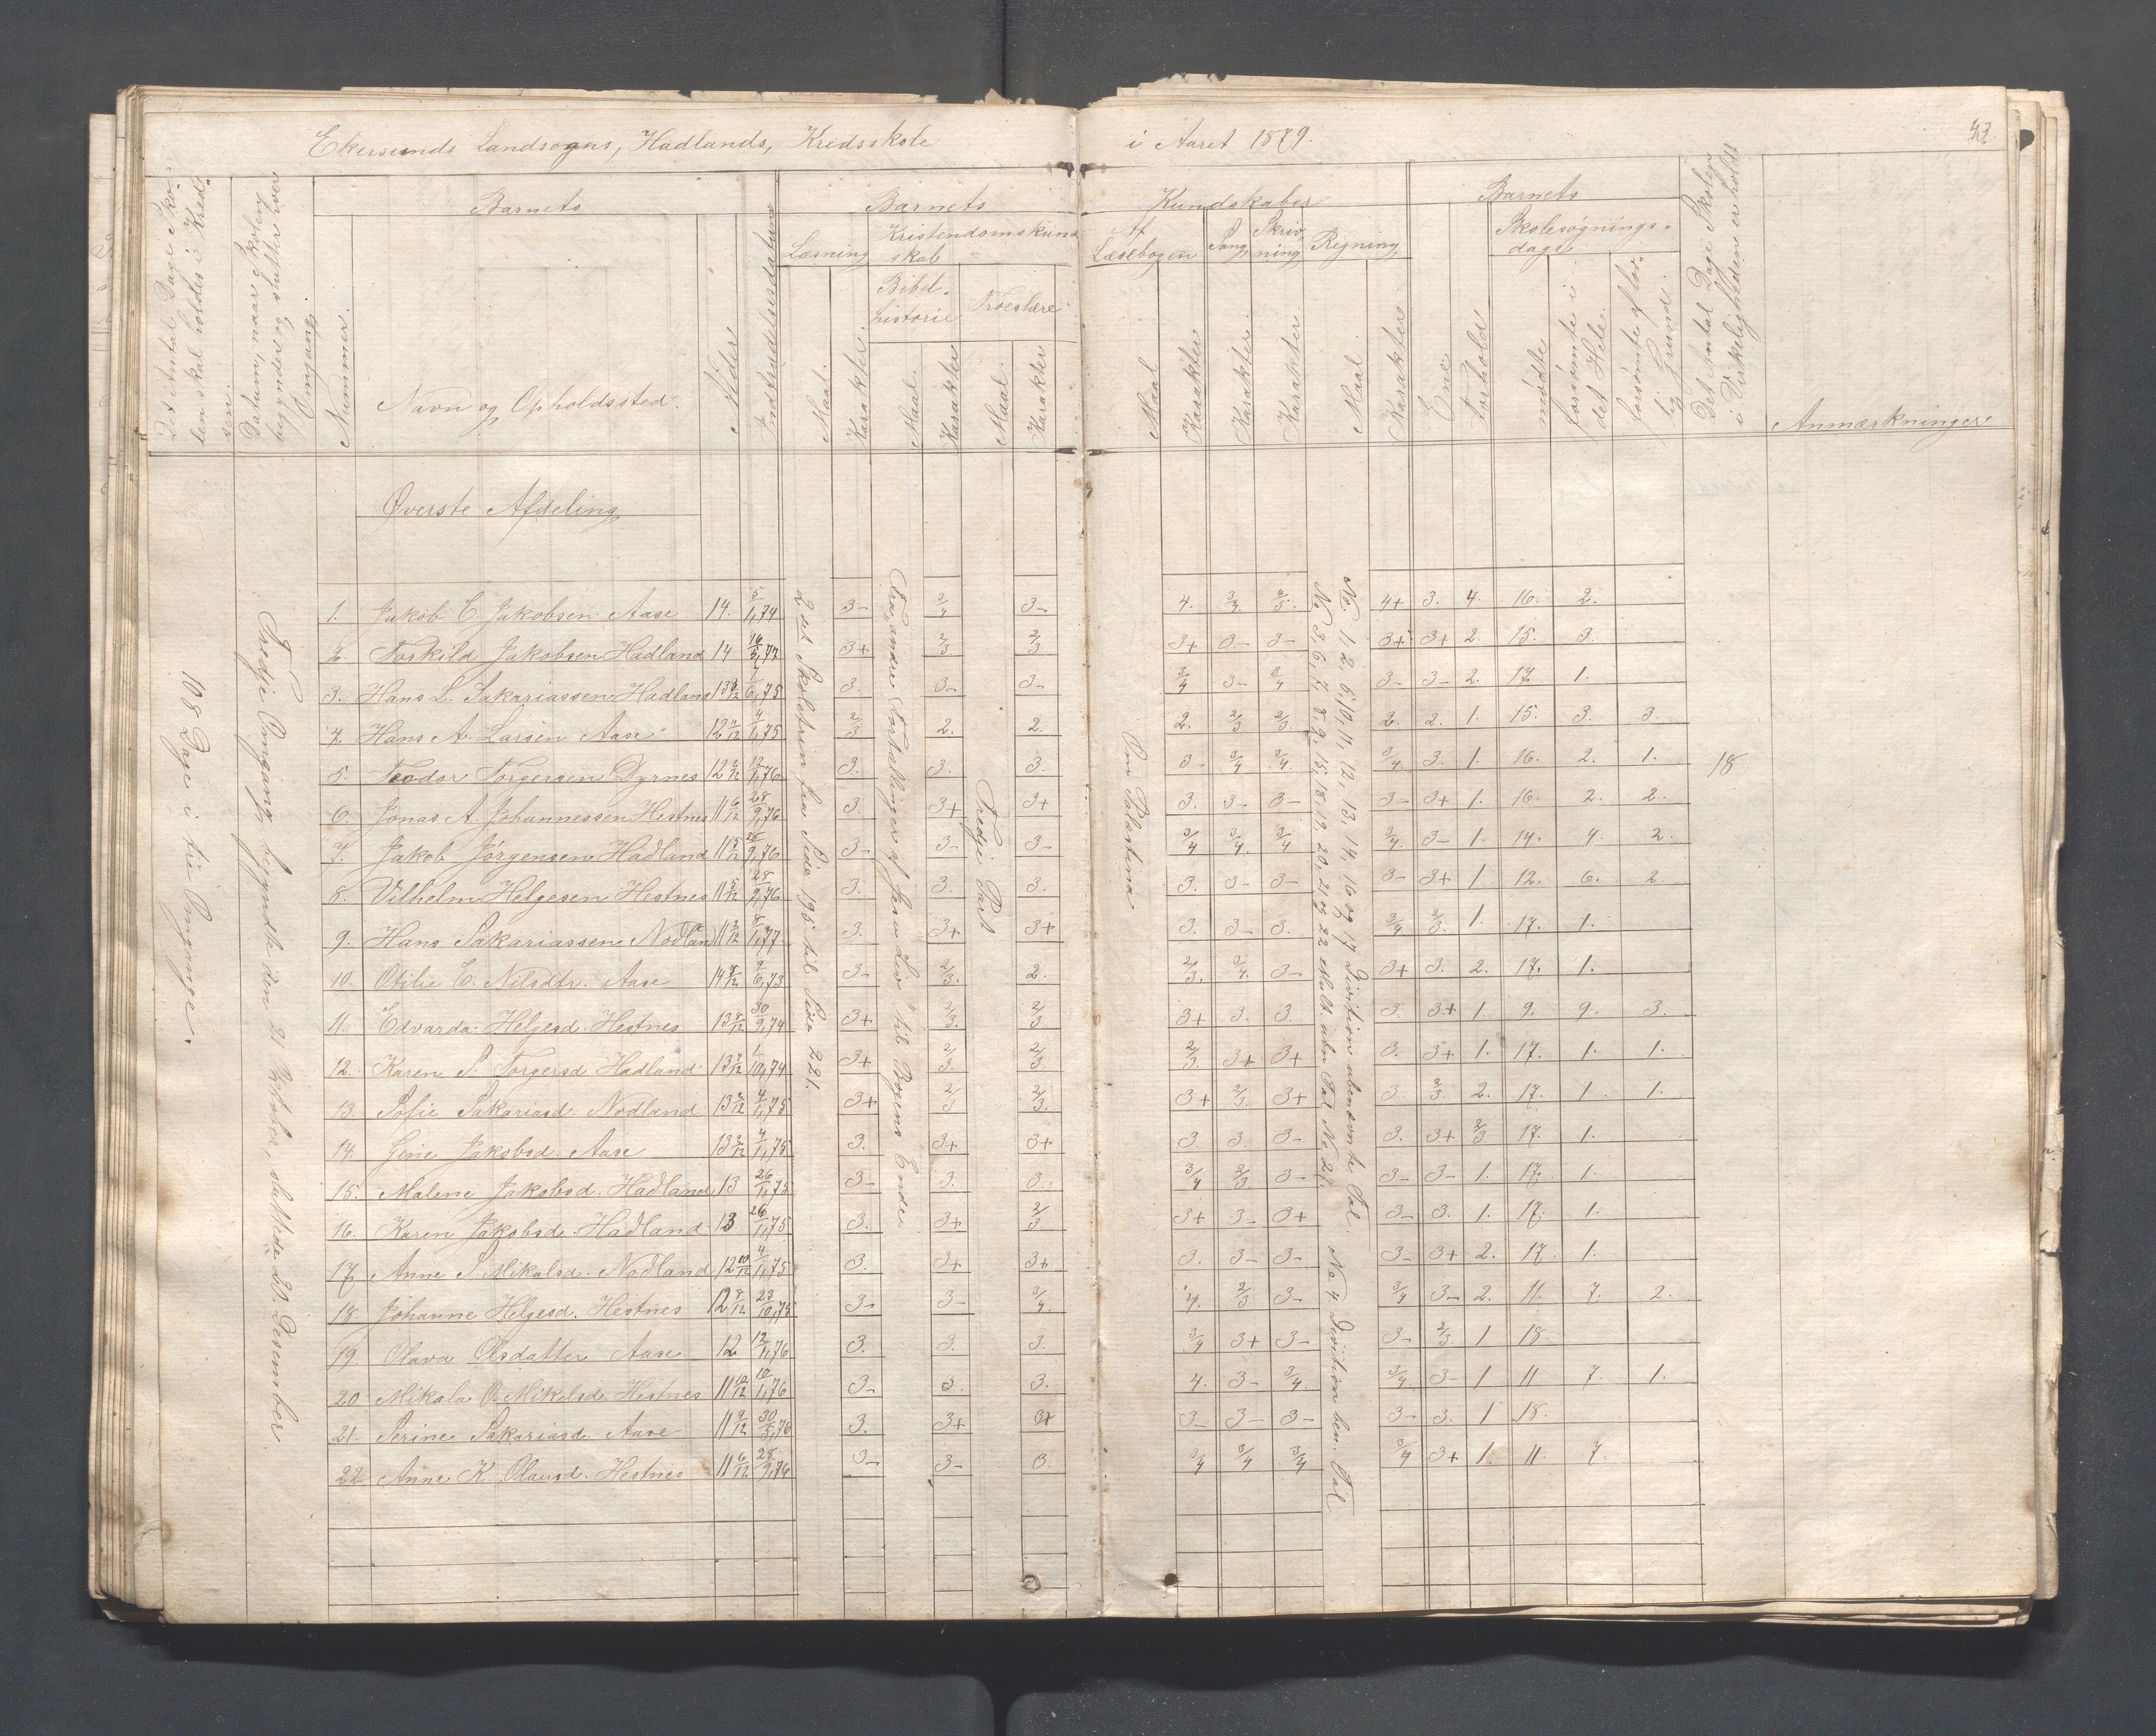 Ekersunds Landsogns, Hadlands, Kredsskole i Aaret 1879.
Det Antal Dage Skolen skal holdes i Kredsen.
Datum, naar Skolen begynder og slutter hver Omgang
Barnets
Nummer.
Navn og Opholdssted.
Alder
Indtrædelsesdatum
Barnets Kundskaber
Læsning
Maal.
Karakter.
Kristendomskundskab
Bibelhistorie
Maal.
Karakter
Troeslære
Maal.
Karakter
Af Læsebogen
Maal
Karakter
Sang
Karakter.
Skrivning
Karakter.
Regning
Maal.
Karakters
Barnets
Evne.
Forhold
Skolesøgningsdage
mødte
forsømte i det Hele.
forsømte af lovlig Grund.
Det Antal Dage Skolen i Virkeligheden er holdt
Anmærkninger
Øverste Afdeling
108 Dage i tre Omgange.
Tredje Omgang begyndte den 21 Oktober, sluttede 20 Desember.
2det Skoletrin fra Side 195 til Side 221.
Fra, andre Fortællinger af Jesu Liv" til Bogens Ende.
Tredje Part
Om Palæstina
No. 1, 2, 6, 10, 11, 12, 13, 14, 16 og 17 Division ubenævnte Tal. No 4 Division ben. Tal
No 3, 6, 7, 8, 9, 15, 18, 19, 20, 21 og 22 Mult. ubn Tal No 21.
1. Jakob E. Jakobsen Aase 14. 5/1,74 3- 3/4 3- 4. 3/4. 2/3. 4+ 3. 4. 16. 2.
2. Toskild Jakobsen Hadland 14 16/3,77 3+ 2/3 2/3 3+ 3- 3- 3+ 3+ 2. 15. 3.
3. Hans L. Sakariassen Hadland 13 3/12 7/6,75 3. 3- 3- 3/4 3- 3/4 3- 3- 2. 17. 1.
4. Hans A. Larsen Aase 12 11/12 4/1,75 2/3 2. 2. 2. 2/3 2/3. 2. 2. 1. 15. 3. 3.
5. Teodor Torgersen Dyrnes 12 2/12 12/1,76 3. 3. 3. 3- 3/4 3/4. 3/4 3. 1. 16. 2. 1. 18
6. Jonas A. Johannessen Hestnes 11 6/12 28/9,76 3. 3+ 3+ 3. 3- 3- 3- 3+ 1. 16. 2. 2.
7. Jakob Jørgensen Hadland 11 5/12 28/9,76 3- 3- 3- 3/4 3/4. 3/4 3/4. 3- 1. 14. 4. 2.
8. Vilhelm Helgesen Hestnes 11 5/12 28/9,76 3. 3. 3. 3. 3- 3- 3- 3+ 1 12. 6. 2.
9. Hans Sakariassen Nodland 11 3/12 8/1,77 3. 3+ 3+ 3. 3- 3. 3/4 2/3. 1. 17. 1.
10. Otilie E. Nilsdtr. Aase 14 8/12 9/6,73 3- 2/3. 2. 2/3. 3/4. 3- 3+ 3. 2. 17. 1.
11. Edvarda Helgesd. Hestnes 13 8/12 30/9,74 3+ 2/3. 2/3 3+ 3. 3. 3. 3+ 1. 9. 9. 3.
12. Karen S. Torgersd Hadland 13 7/12 1/10,74 3+ 2/3. 2/3 2/3. 3+ 3+ 3. 3+ 1. 17. 1. 1.
13. Sofie Sakariasd. Nodland 13 2/12 4/1,75 3+ 2/3 2/3. 3+ 2/3. 3+ 3 2/3 2. 17. 1. 1.
14. Gine Jakobsd. Aase 13 2/12 4/1,75 3. 3+ 3+ 3. 3. 3- 3. 3+ 2/3 17. 1.
15. Malene Jakobsd. Hadland 13 26/1,75 3- 3. 3. 3/4 2/3. 3- 3- 3- 1. 17. 1.
16. Karen Jakobsd. Hadland 13 26/1,75 3. 3+ 2/3. 3+ 3- 3+ 3- 3. 1. 17. 1.
17 Anne S. Mikalsd. Nodland 12 10/12 4/1,75 3. 3+ 3+ 3. 3- 3- 3- 3+ 2. 17. 1.
18 Johanne Helgesd. Hestnes 12 8/12 23/10,75 3- 3- 3/4. 4. 2/3 3- 3/4 3- 2. 11. 7. 2.
19. Olava Olsdatter Aase 12 12/1,76 3. 3. 3. 3/4 3+ 3- 3- 2/3. 1 18.
20 Mikala O. Mikalsd. Hestnes 11 10/12 10/1,76 3- 3. 3. 4. 3- 3/4. 3/4. 3- 1 11. 7. 1.
21. Serine Sakariasd. Aase 11 9/12 30/3,76 3. 3+ 3+ 3- 3- 3- 3- 3. 1 18.
22 Anne K. Olausd. Hestnes 11 6/12 28/9,76 3- 3- 3. 3/4 3/4 3/4 3/4 3+ 1. 11. 7.